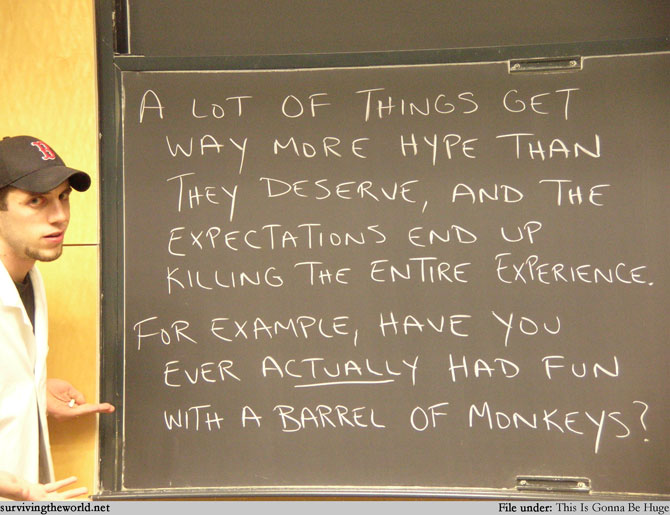 A LOT OF THINGS GET
WAY MORE HYPE THAN
THEY DESERVE, AND THE
EXPECTATIONS END UP
KILLING THE ENTIRE EXPERIENCE.
FOR EXAMPLE, HAVE YOU
EVER ACTUALLY HAD FUN
WITH A BARREL OF MONKEYS?
B
survivingtheworld.net File under: This Is Gonna Be Huge